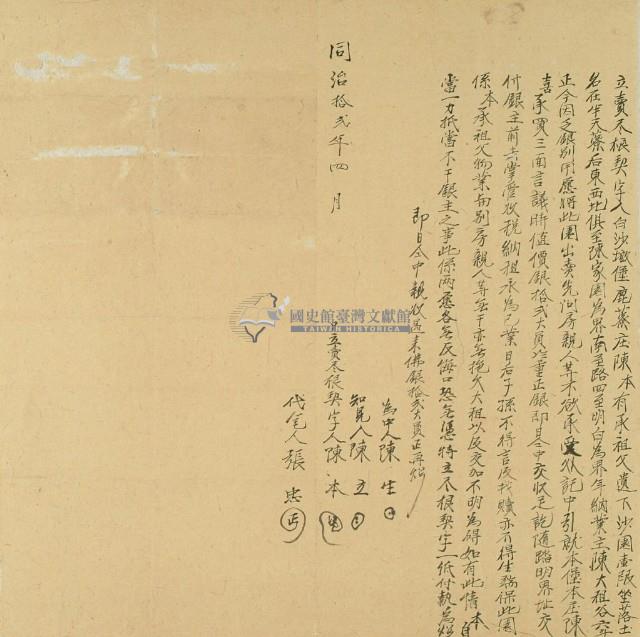 立賣不根契字人白沙墩堡鹿藔庄陳本有承祖父遺下沙園壹坵坐落土
名在半天藔后東西北俱至陳家園為界南至路四至明白為界年納業主陳大租谷
正今因乏銀別用應將此園出賣先問房親人等不欲承受外託中引就本堡本庄陳
喜承買三面言議時值價銀拾弍大員正重正銀即日仝中交收足訖隨踏明界址交
付銀主前去掌管收稅納租永為己業日后子孫不得言及找贖亦不得生端保此園
係本承祖父物業與別房親人等無干亦無拖欠大租以及交加不明為碍如有此情本自
當一力抵當不干銀主之事此係兩愿各無反悔口恐無憑特立不根契字一紙付執為炤
即日仝中親收過來佛銀拾弍大員正再炤
為中人陳生
知見人陳立
同治拾弍年四月 立賣不根契字人陳本
代笔人張忠
國史館臺灣文獻館
TAIWAN HISTORICA